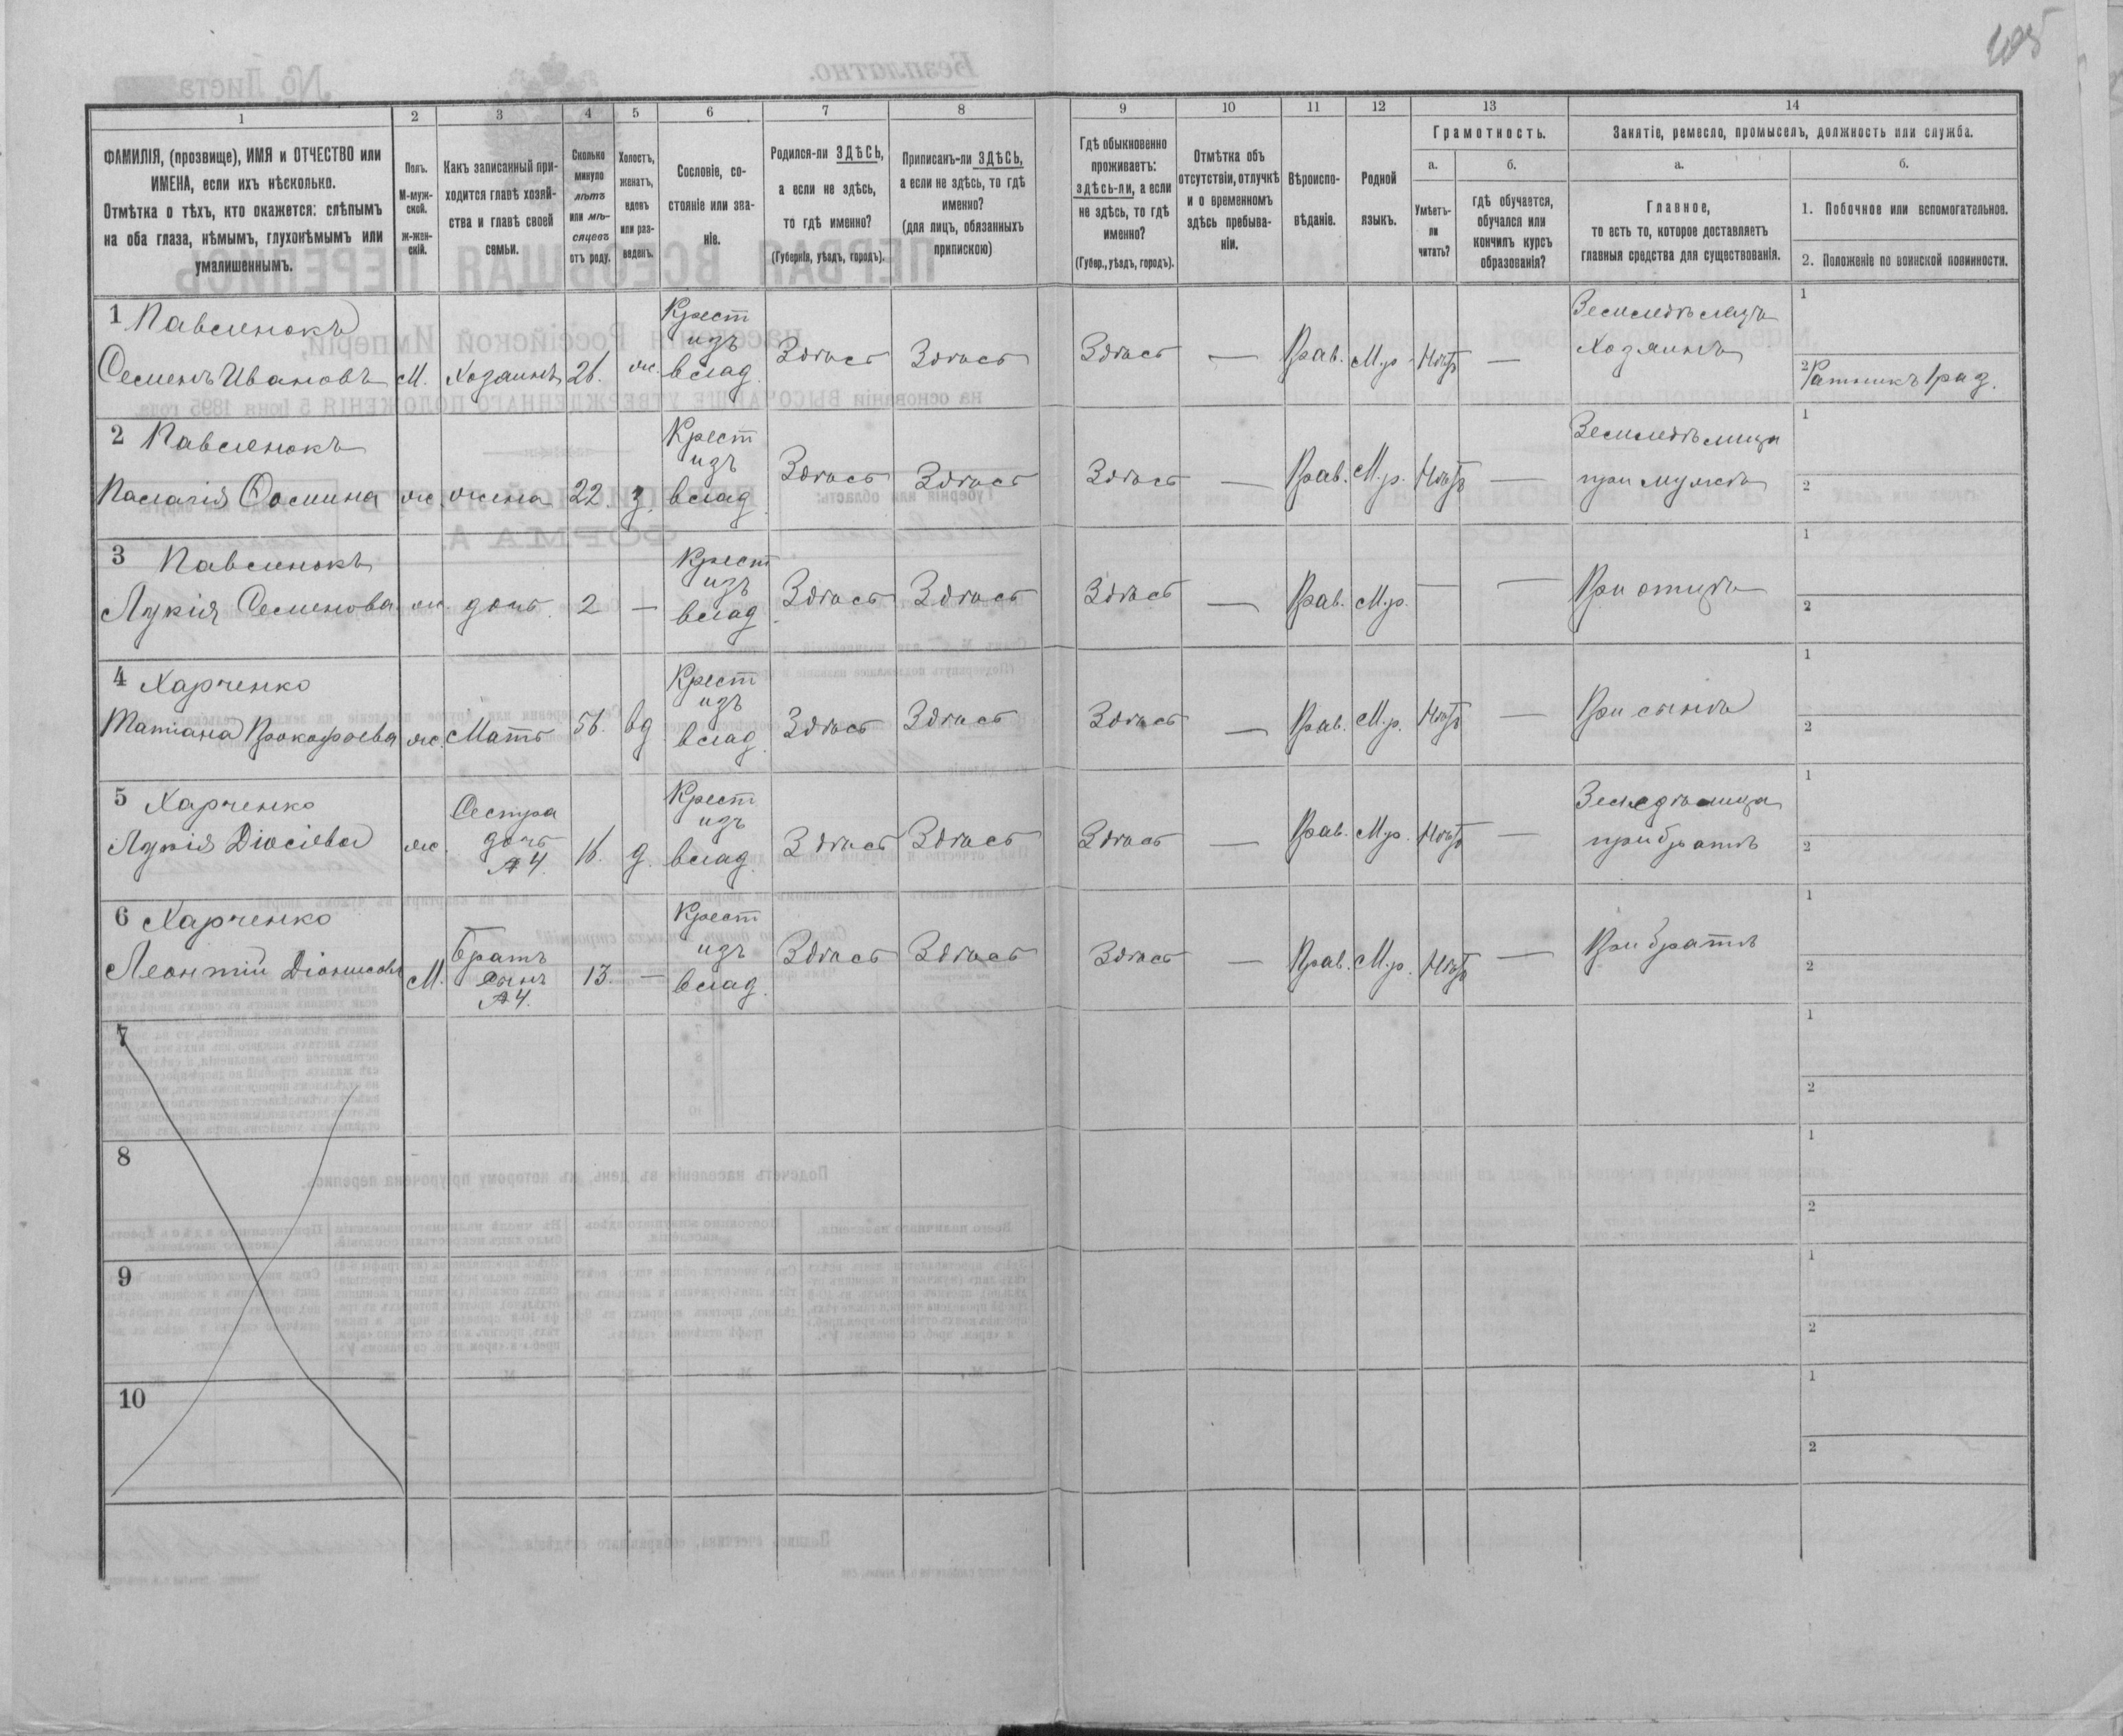 405
1
2
3
4
5
6
7
8
9
10
11
12
13
14
ФАМИЛІЯ, (прозвище), ИМЯ и ОТЧЕСТВО или
ИМЕНА, если ихъ нѣсколько.
Отмѣтка о тѣхъ, кто окажется: слѣпымъ
на оба глаза, нѣмымъ, глухонѣмымъ или
умалишеннымъ.
Полъ.
М-муж-
ской.
ж-жен-
скій.
Какъ записанный при-
ходится главѣ хозяй-
ства и главѣ своей
семьи.
Сколько
минуло
лѣтъ
или мѣ-
сяцевъ
отъ роду.
Холостъ,
женатъ,
вдовъ
или раз-
веденъ.
Сословіе, со-
стояніе или зва-
ніе.
Родился-ли ЗДѢСЬ,
а если не здѣсь,
то гдѣ именно?
(Губернія, уѣздъ, городъ).
Приписанъ-ли ЗДѢСЬ,
а если не здѣсь, то гдѣ
именно?
(для лицъ, обязанныхъ
припискою)
Гдѣ обыкновенно
проживаетъ:
здѣсь-ли, а если
не здѣсь, то гдѣ
именно?
(Губер., уѣздъ, городъ).
Отмѣтка объ
отсутствіи, отлучкѣ
и о временномъ
здѣсь пребыва-
ніи.
Вѣроиспо-
вѣданіе.
Родной
языкъ.
Грамотность.
а.
Умѣетъ-
ли
читать?
б.
гдѣ обучается,
обучался или
кончилъ курсъ
образованія?
Занятіе, ремесло, промыселъ, должность или служба.
а.
Главное,
то есть то, которое доставляетъ
главныя средства для существованія.
б.
1. Побочное или вспомогательное.
2. Положеніе по воинской повинности.
1 Павленокъ
Семенъ Ивановъ М. Хозаинъ 26. ж. Крест изъ влад. Здѣсь Здѣсь Здѣсь — Прав. М.р. Нѣтъ —
Хозяинъ
1
2 Ратникъ 1 раз.
2 Павленокъ
Пелагія Ѳомина ж. жена 22. з. Крест изъ влад. Здѣсь Здѣсь Здѣсь — Прав. М.р. Нѣтъ —
при мужѣ
1
2
3 Павленокъ
Лукія Семенова ж. дочь 2 — Крест изъ влад. Здѣсь Здѣсь Здѣсь — Прав. М.р. — — При отцѣ
1
2
4 Харченко
Татіана Прокофьева ж. Мать 56. вд Крест изъ влад. Здѣсь Здѣсь Здѣсь — Прав. М.р. Нѣтъ — При сынѣ
1
2
5 Харченко
Лукія ж. Сестра дочь №4. 16. д. Крест изъ влад. Здѣсь Здѣсь Здѣсь — Прав. М.р. Нѣтъ —
при братѣ
1
2
6 Харченко
Леонтій М. Братъ сынъ №4. 13. — Крест изъ влад. Здѣсь Здѣсь Здѣсь — Прав. М.р. Нѣтъ — При братѣ
1
2
7
1
2
8
1
2
9
1
2
10
1
2